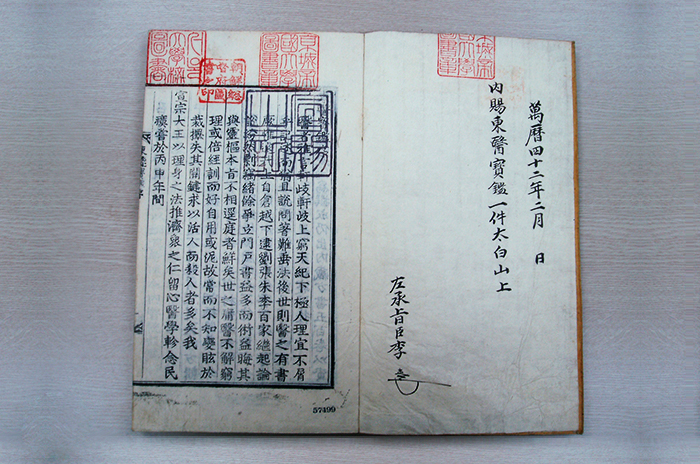 萬曆四十二年二月 日
内賜東醫寶鑑一件太白山上
左承旨臣李
京城帝國大學圖書章
岐軒岐上窮天紀下極人理宜不屑
且說問著難垂法後世則醫之有書
上自倉越下逮劉張朱李百家繼起論
剽竊緒餘爭立門戶書益多而術益晦其
與靈樞本旨不相逕庭者鮮矣世之庸醫不解窮
理或倍經訓而好自用或泥故常而不知變眩於
裁擇失其關鍵求以活人而殺人者多矣我
宣宗大王以理身之法推濟衆之仁留心醫學軫念民
瘼嘗於丙申年間
57499